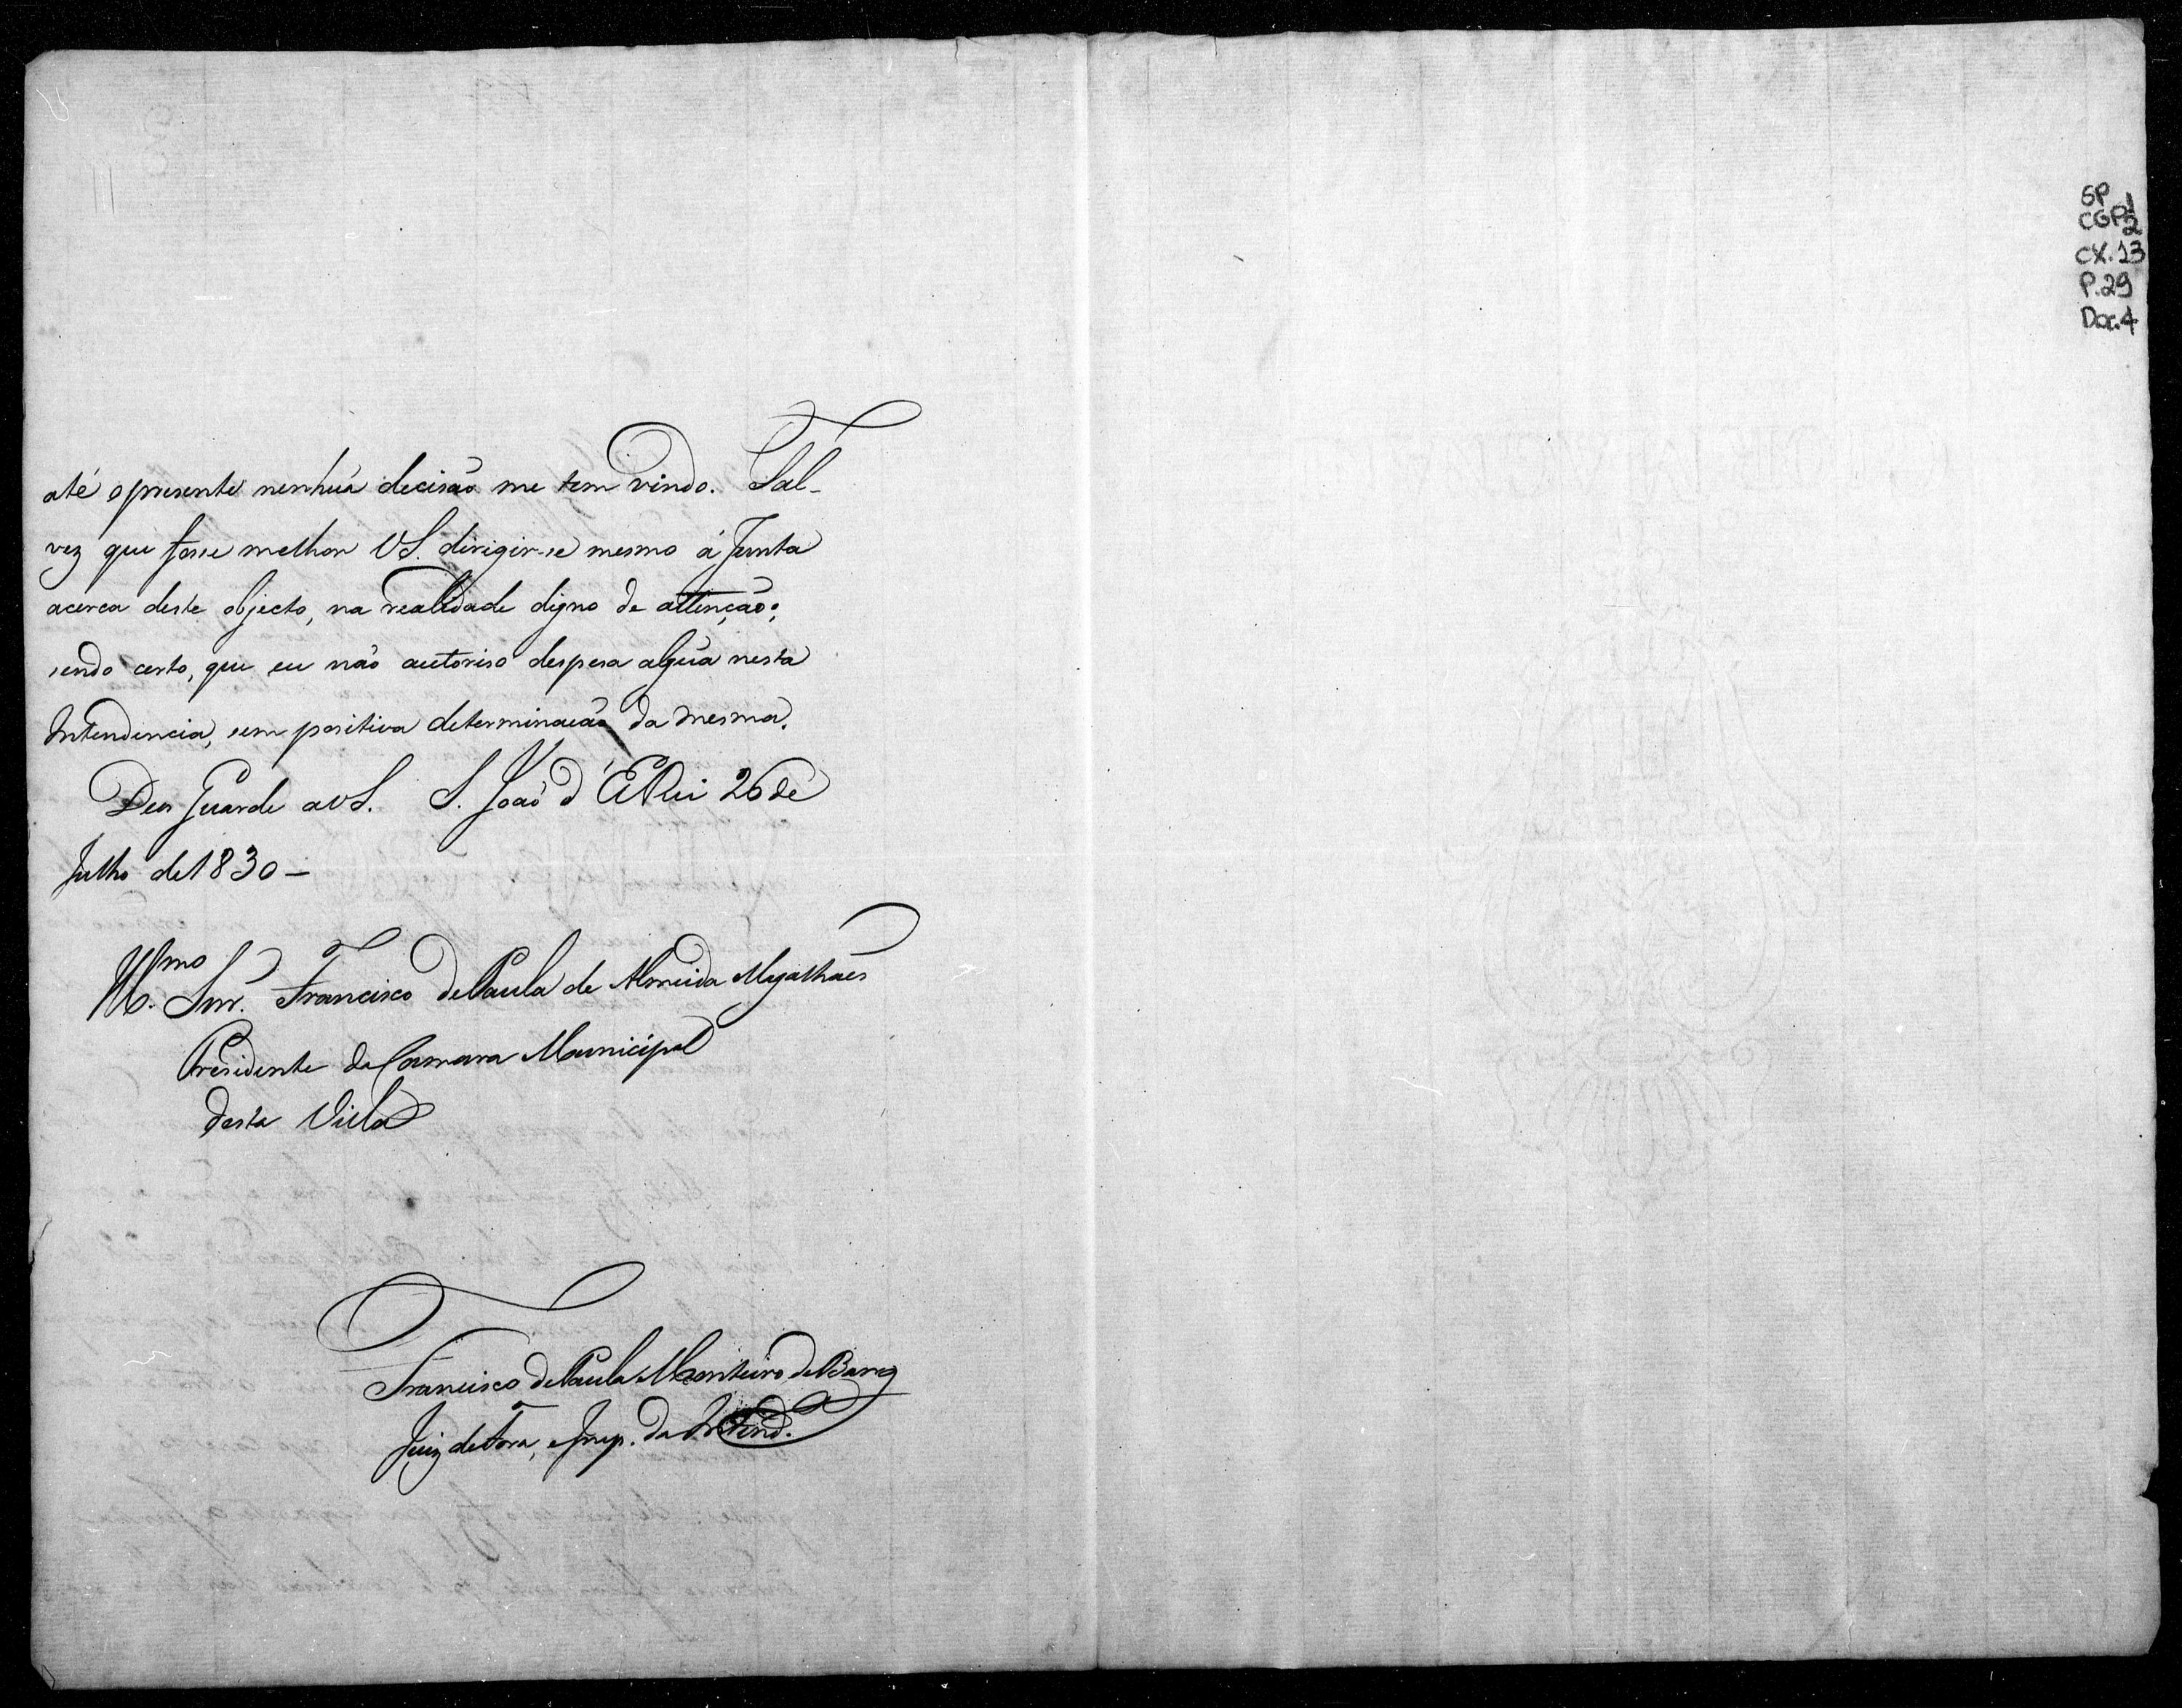 até o presente nenhũa decisão me tem vindo. Tal-
vez que fosse melhor VS. dirigir-se mesmo á Junta
acerca deste objecto, na realidade digno de attenção;
sendo certo, que eu não autoriso despesa algũa nesta
Intendencia, sem positiva determinação da mesma.
Deos Guarde a VS. S. João d'ElRei 26 de
Julho de 1830 –
Illmo. Snr. Francisco de Paula de Almeida Magalhães
Presidente da Camara Municipal
desta Villa
Francisco de Paula Monteiro de Barros
Juiz de Fora, e Insp. da Intend.
SP
CGP1
2
CX. 13
P. 29
Doc. 4